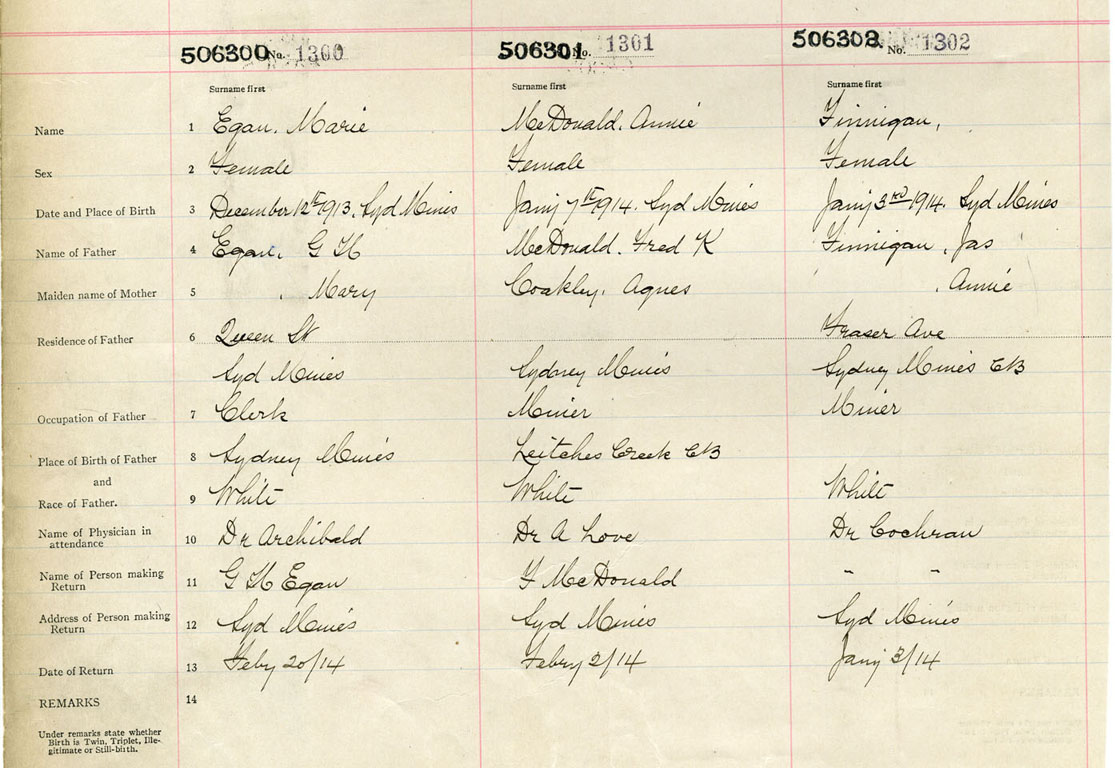 506300 No. 1300 506301 No. 1301 506302 No. 1302
Surname first Surname first Surname first
Name 1 Egan, Marie McDonald, Annie Finnigan,
Sex 2 Female Female Female
Date and Place of Birth 3 December 12th 1913, Syd Mines Jany 7th 1914. Syd Mines Jany 3rd 1914. Syd Mines
Name of Father 4 Egan, G H McDonald. Fred K Finnigan, Jas
Maiden name of Mother 5 , Mary Coakley, Agnes , Annie
Residence of Father 6 Queen St Fraser Ave
Syd Mines Sydney Mines Sydney Mines CB
Occupation of Father 7 Clerk Miner Miner
Place of Birth of Father 8 Sydney Mines Leitches Creek CB
and
Race of Father. 9 White White White
Name of Physician in
attendance 10 Dr Archibald Dr A Love Dr Cochran
Name of Person making
Return 11 G H Egan F McDonald " "
Address of Person making
Return 12 Syd Mines Syd Mines Syd Mines
Date of Return 13 Feby 20/14 Febry 2/14 Jany 3/14
REMARKS 14
Under remarks state whether
Birth is Twin, Triplet, Ille-
gitimate or Still-birth.